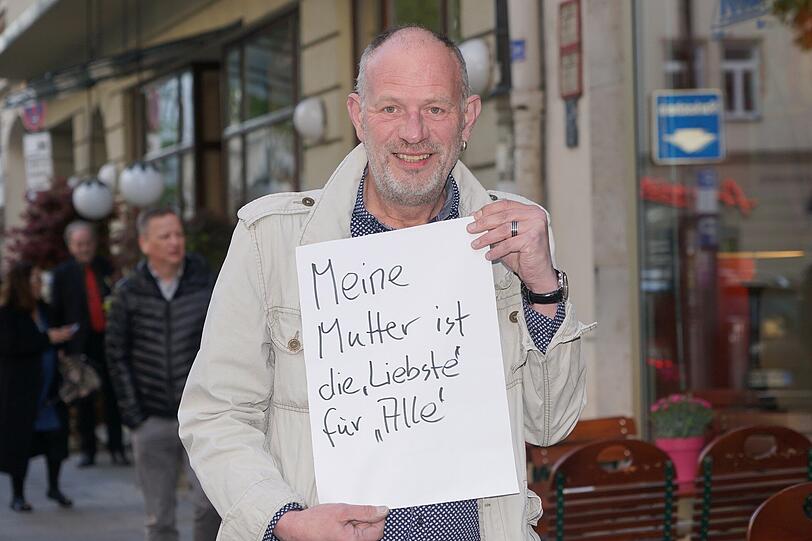 Meine
Mutter ist
die „Liebste“
für „Alle“